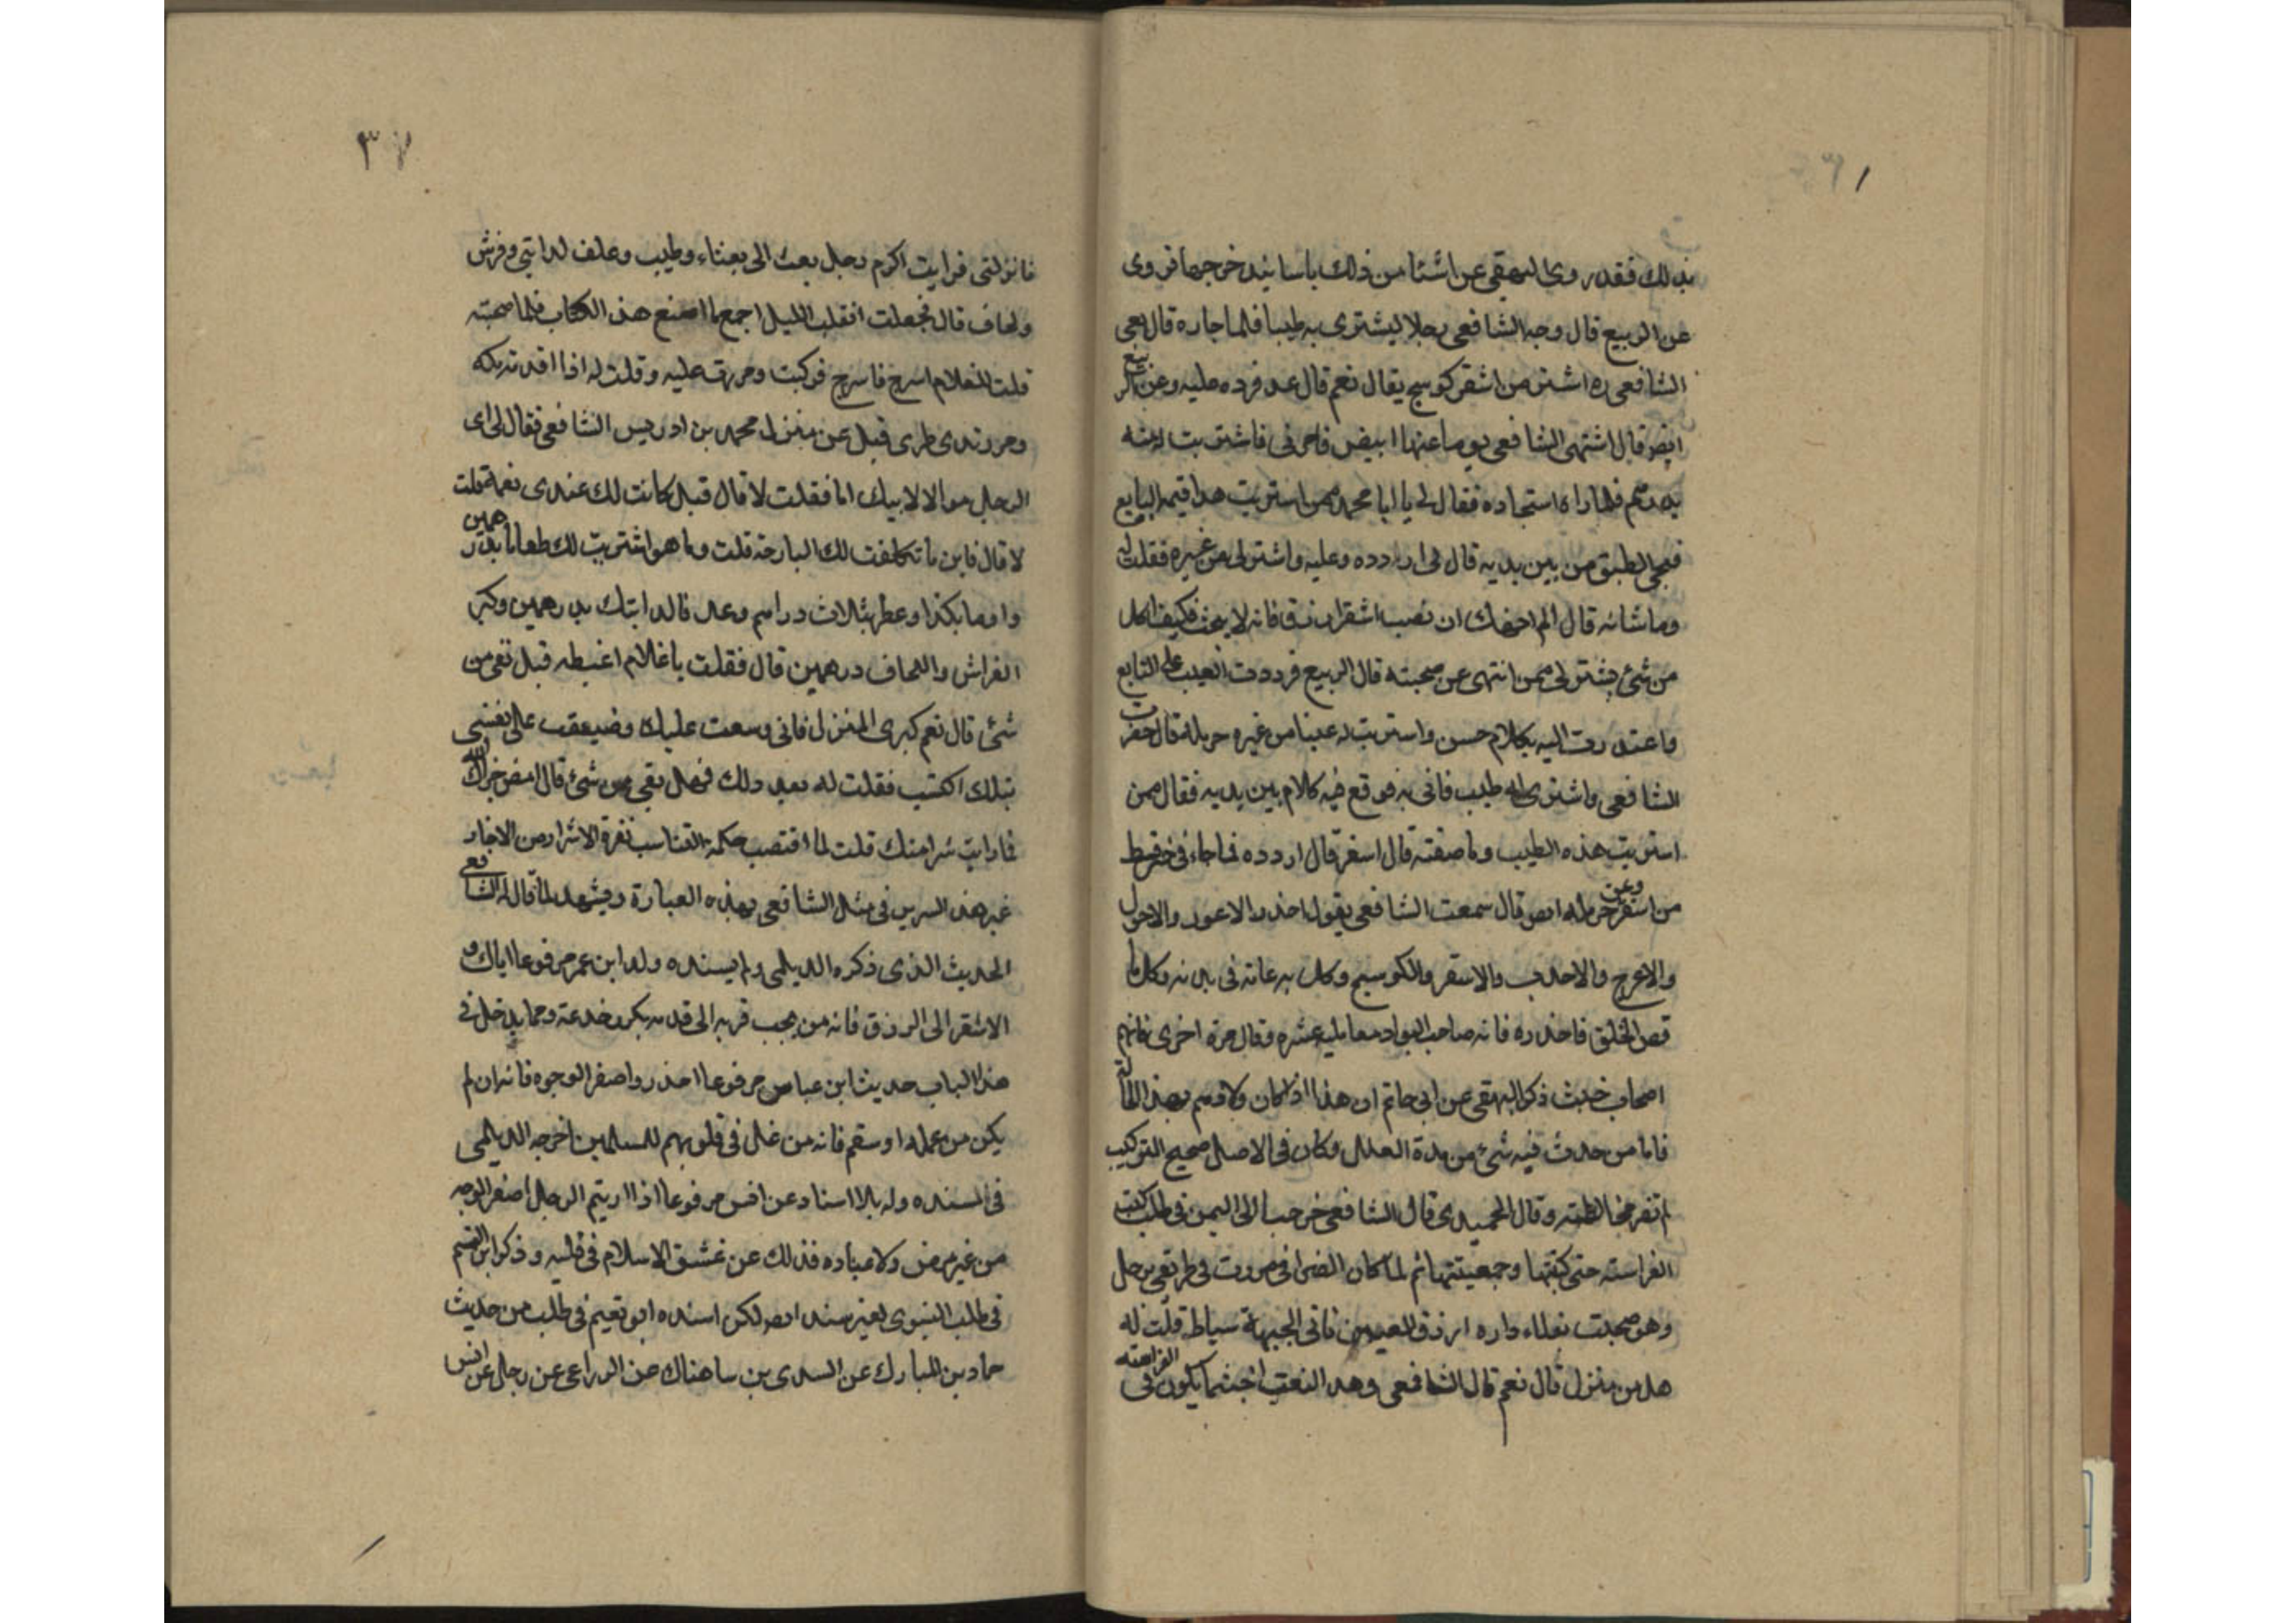 بذلك فقد روى البيهقى عن اشيا من ذلك باسانيد خرجها فروى
عن الربيع قال وجه الشافعى رجلا ليشترى به طيبا فلما جاره قال يعى
الشافعى ره اشتر من اشقر كوسج يقال نعم قال عد فرده عليه وعن الربيع
ايضو قال اشتهى الشافعى يوما عنبا ابيض فامرنى فاشتريت له منه
بدرهم فلما راه استجاده فقال لى يا ابا محمد ممن استريت هدا البايع
فنحى الطبق من بين يديه قال لى اردده وعليه واشتر لى من غيره فقلت له
وما شانه قال الم انهك ان تصحب اشقر ازرق فانه لا ينجب فكيف اكل
من شئ يشترى ممن انتهى عن صحبته قال الربيع فرددت العنب على البايع
واعتذرت اليه بكلام حسن واستريت له عنبا من غيره حرملة قال حضرت
الشافعى واشترى له طيب فاتى به فوقع فيه كلام بين يديه فقال ممن
استريت هذه الطيب وما صفته قال اسقر قال اردده فما جاءنى خير قط
من اسقر وعن حرمله ايصو قال سمعت الشافعى يقول احذر الاعور والاحول
والاعرج والاحدب والاسقر والكوسج وكل به عاته فى بدنه وكل ما
قص الخلق فاحذره فانه صاحب معامليه عشره وقال مرة اخرى فانهم
اصحاب خبث ذكر البيهقى عن ابى حاتم ان هذا اذا كان ولادهم بهذا الحالة
فاما من حدث فيه شئ من هذة العلل وكان فى الاصل صحيح التركيب
لم تضر مخالطته وقال الحميدى قال الشافعى خرجت الى اليمن فى طلب كتب
الفراسته حتى كتبتها وجمعيتها ثم لما كان انصرافى مررت فى طريقى برجل
وهو بفناء داره ازرق العينين ناتى الجبهة سباط قلت له
هل من منزل قال نعم قال الشافعى وهد النعت اخبث ما يكون فى الفراسته
٣٧
فانزلنى فرايت اكرم رجل بعث الى بعشاء وطيب وعلف لدابتى وفرش
ولحاف قال فجعلت اتقلب الليل اجمع ما اصنع هذا الكتاب فلما صحبته
قلت للغلام اسرج فاسرج فركبت ومررت عليه وقلت له اذا اقدمت مكه
ومررت بذى طوى قيل عن منزل محمد بن ادريس الشافعى فقال لى اى
الرجل مولا لابيك انا فقلت لا قال قيل كانت لك عندى نعمة قلت
لا قال فاين ما تكلفت لك البارحة قلت وما هو اشتريت لك طعاما بدرهمين
واداما بكذا وعطر بثلاث دراهم وعلف لدابتك بدرهمين وكرى
الفراش واللحاف درهمين قال فقلت ياغلام اعطه قيل بقى من
شئ قال نعم كرى المنزل فانى وسعت عليك وضيقت على نفسى
بتلك الكتب فقلت له بعد ذلك فهل بقى من شئ قال امض خزاك الله
فما رايت شرا منك قلت
غير هذا السر فى مثل الشافعى بهذه العبارة ويشهد لما قال له الشافعى
الحديث الذى ذكره الديلمى ولم يسنده ولد ابن عمر مرفوعا اياك و
الاشقر الى الرزق فانه من خدعة ومما يدخل فى
هذا الباب حديث ابن عباس مرفوعا احذروا صفر الوجوه فانه ان لم
يكن من عمله او سقم فانه من غل فى قلوبهم للمسلمين اخرجه الديلمى
فى المسنده وله بلا اسناد عن انس مرفوعا اذا اريتم الرجل اصفر الوجه
من غير مرض ولا عباده فذلك عن غش الاسلام فى قلبه وذكر ابن القسيم
فى طب النبوى بغير سند ايصو لكن اسنده ابو نعيم فى طلب من حديث
حماد بن المبارك عن السدى بن ساهناك عن عن رجل عن انس